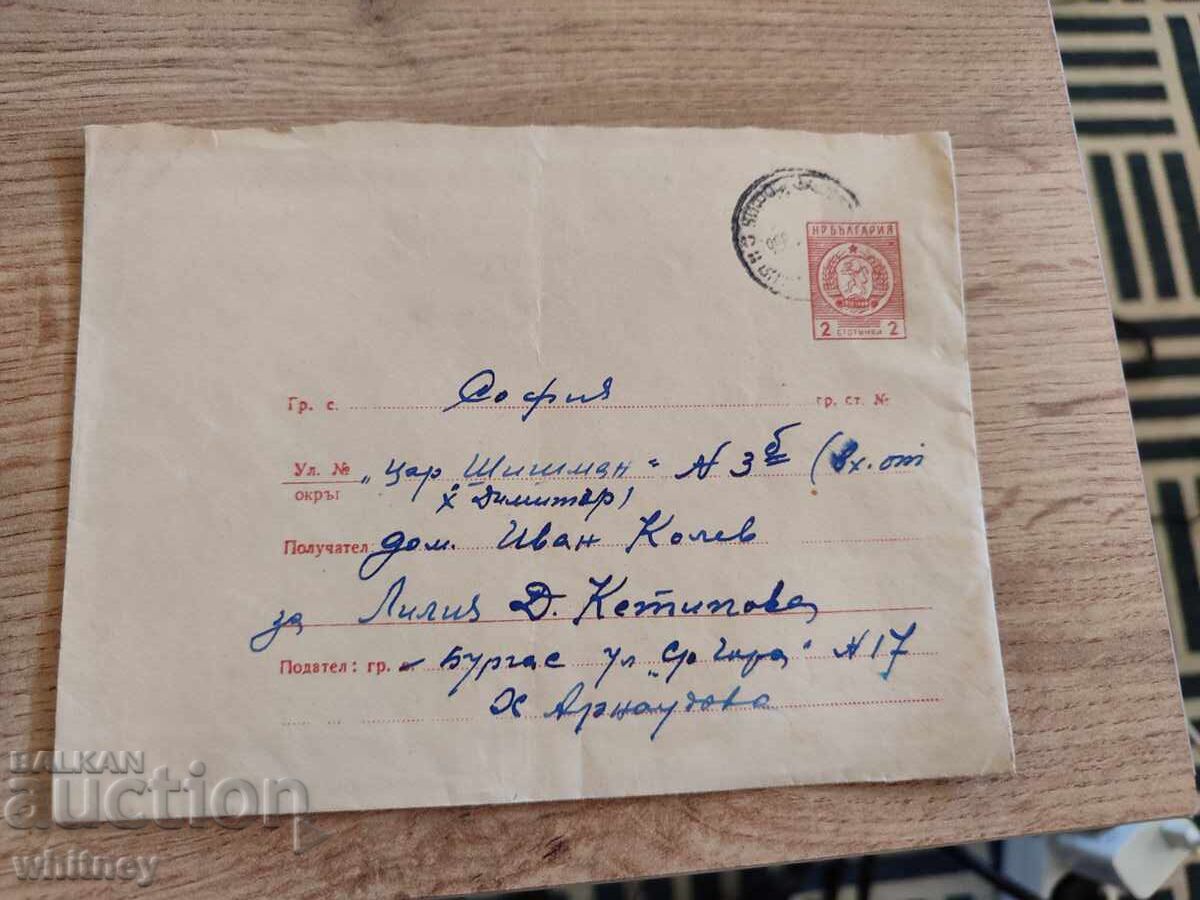 НР БЪЛГАРИЯ
2 СТОТИНКИ 2
Гр. с. София гр. ст. №
Ул. № „Цар Шишман" N 3б (вх. от
окръг Х Димитър)
Получател: дом. Иван Колев
за Лилия Д. Кетипова
Подател: гр. Бургас ул „Ср Гора" N 17
Х Арнаудова
BALKAN
auction
whitney